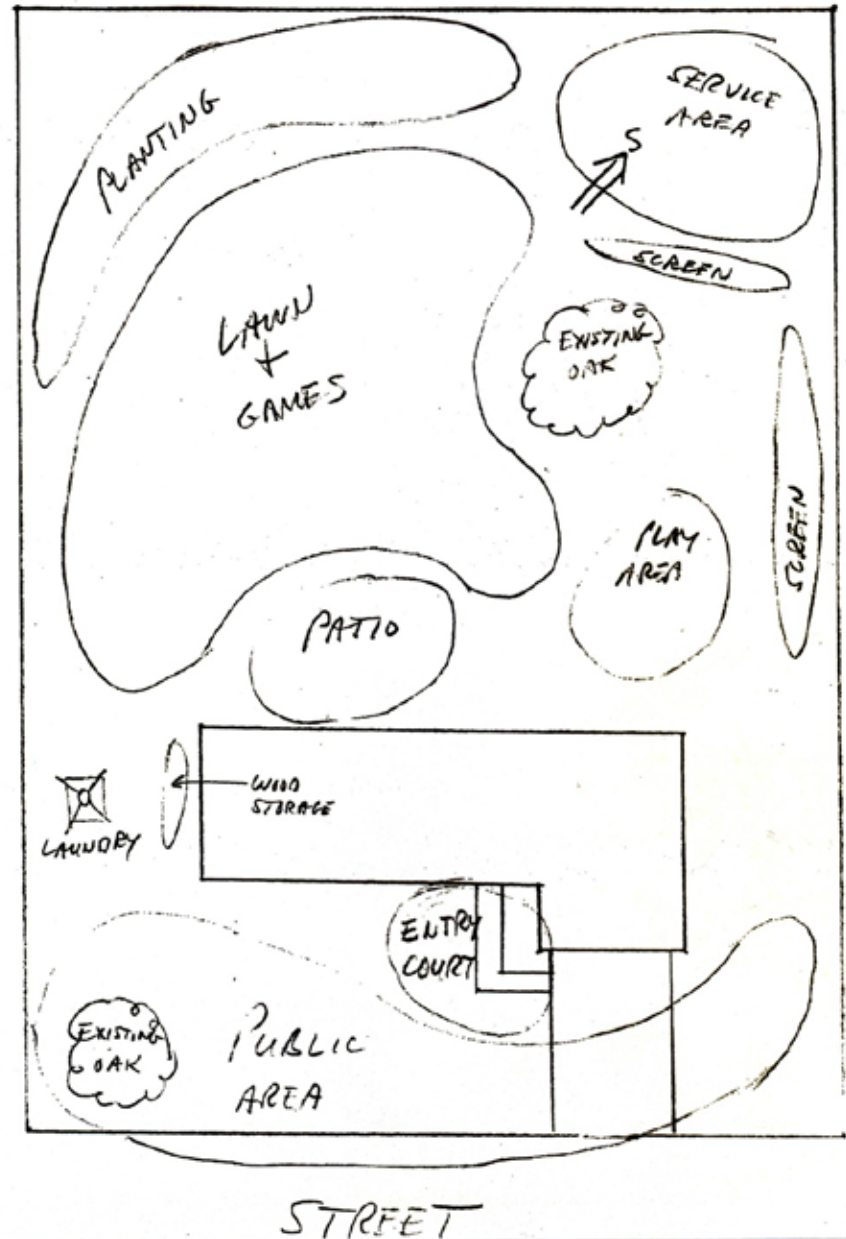 PLANTING
SERVICE
AREA
S
SCREEN
LAWN
+
GAMES
EXISTING
OAK
SCREEN
PLAY
AREA
PATIO
WOOD
STORAGE
LAUNDRY
ENTRY
COURT
EXISTING
OAK
PUBLIC
AREA
STREET